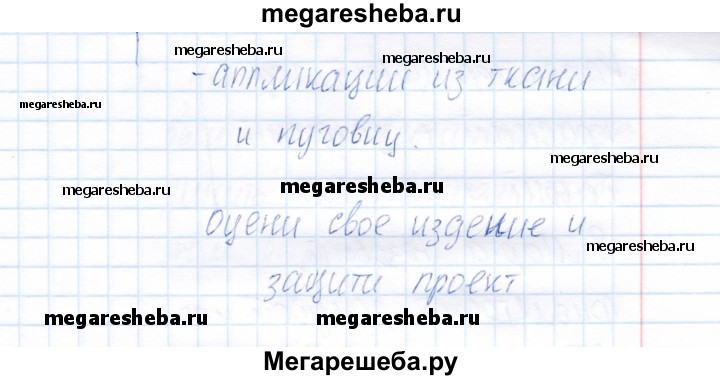 megaresheba.ru
megaresheba.ru megaresheba.ru
-аппликации из ткани megaresheba.ru
megaresheba.ru
и пуговиц.
megaresheba.ru
megaresheba.ru megaresheba.ru
оцени свое изделие и
megaresheba.ru
защити проект
megaresheba.ru megaresheba.ru
Мегарешеба.ру